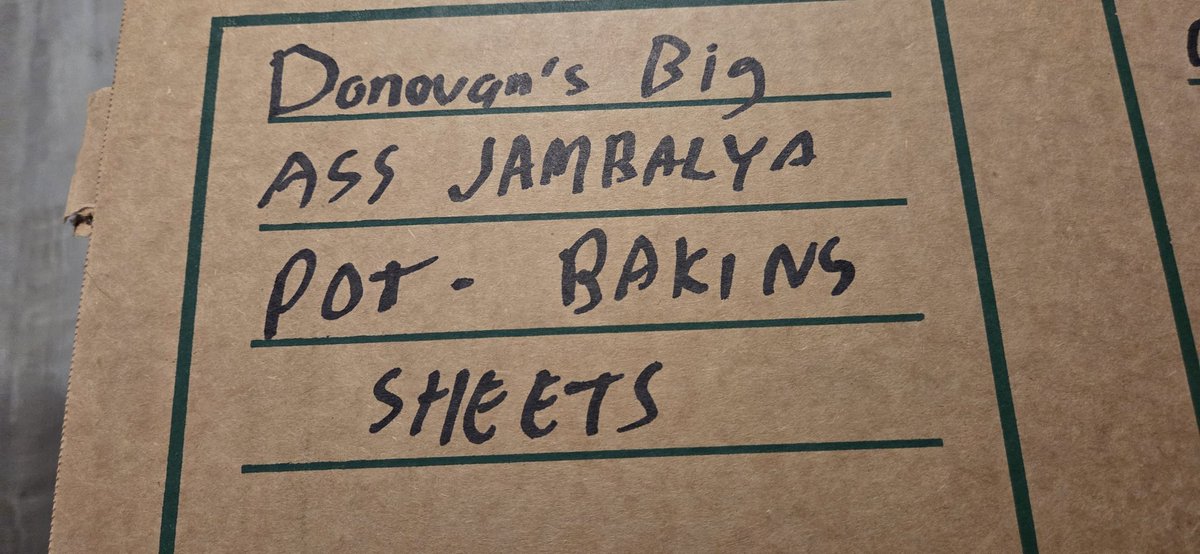 Donovan's Big
ASS JAMBALYA
POT - BAKING
SHEETS